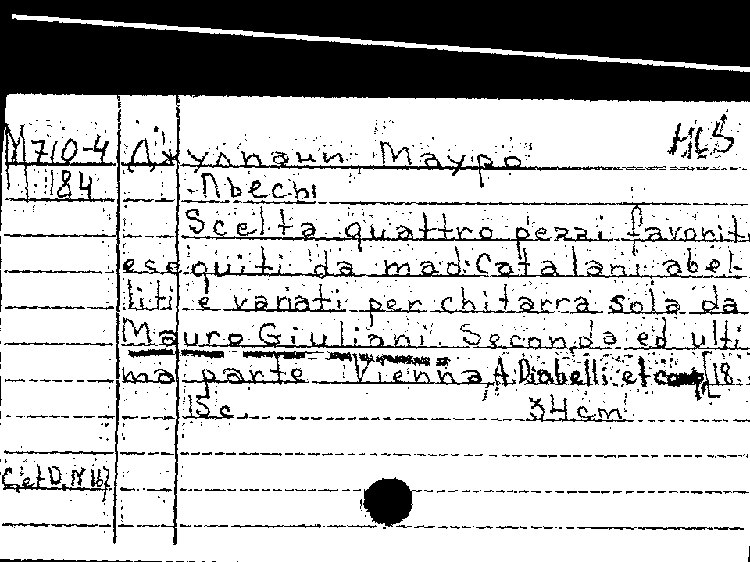 М710-4 Джулиани Мауро
184 Пьесы
Scelta quattro pezzi favorit
eseguiti da mad. Catalani abel-
liti e variati per chitarra sola da
Mauro Giuliani. Seconda ed ulti
ma parte Vienna, A. Diabelli et comp [18
15 c. 34 cm
C. et D. N 167